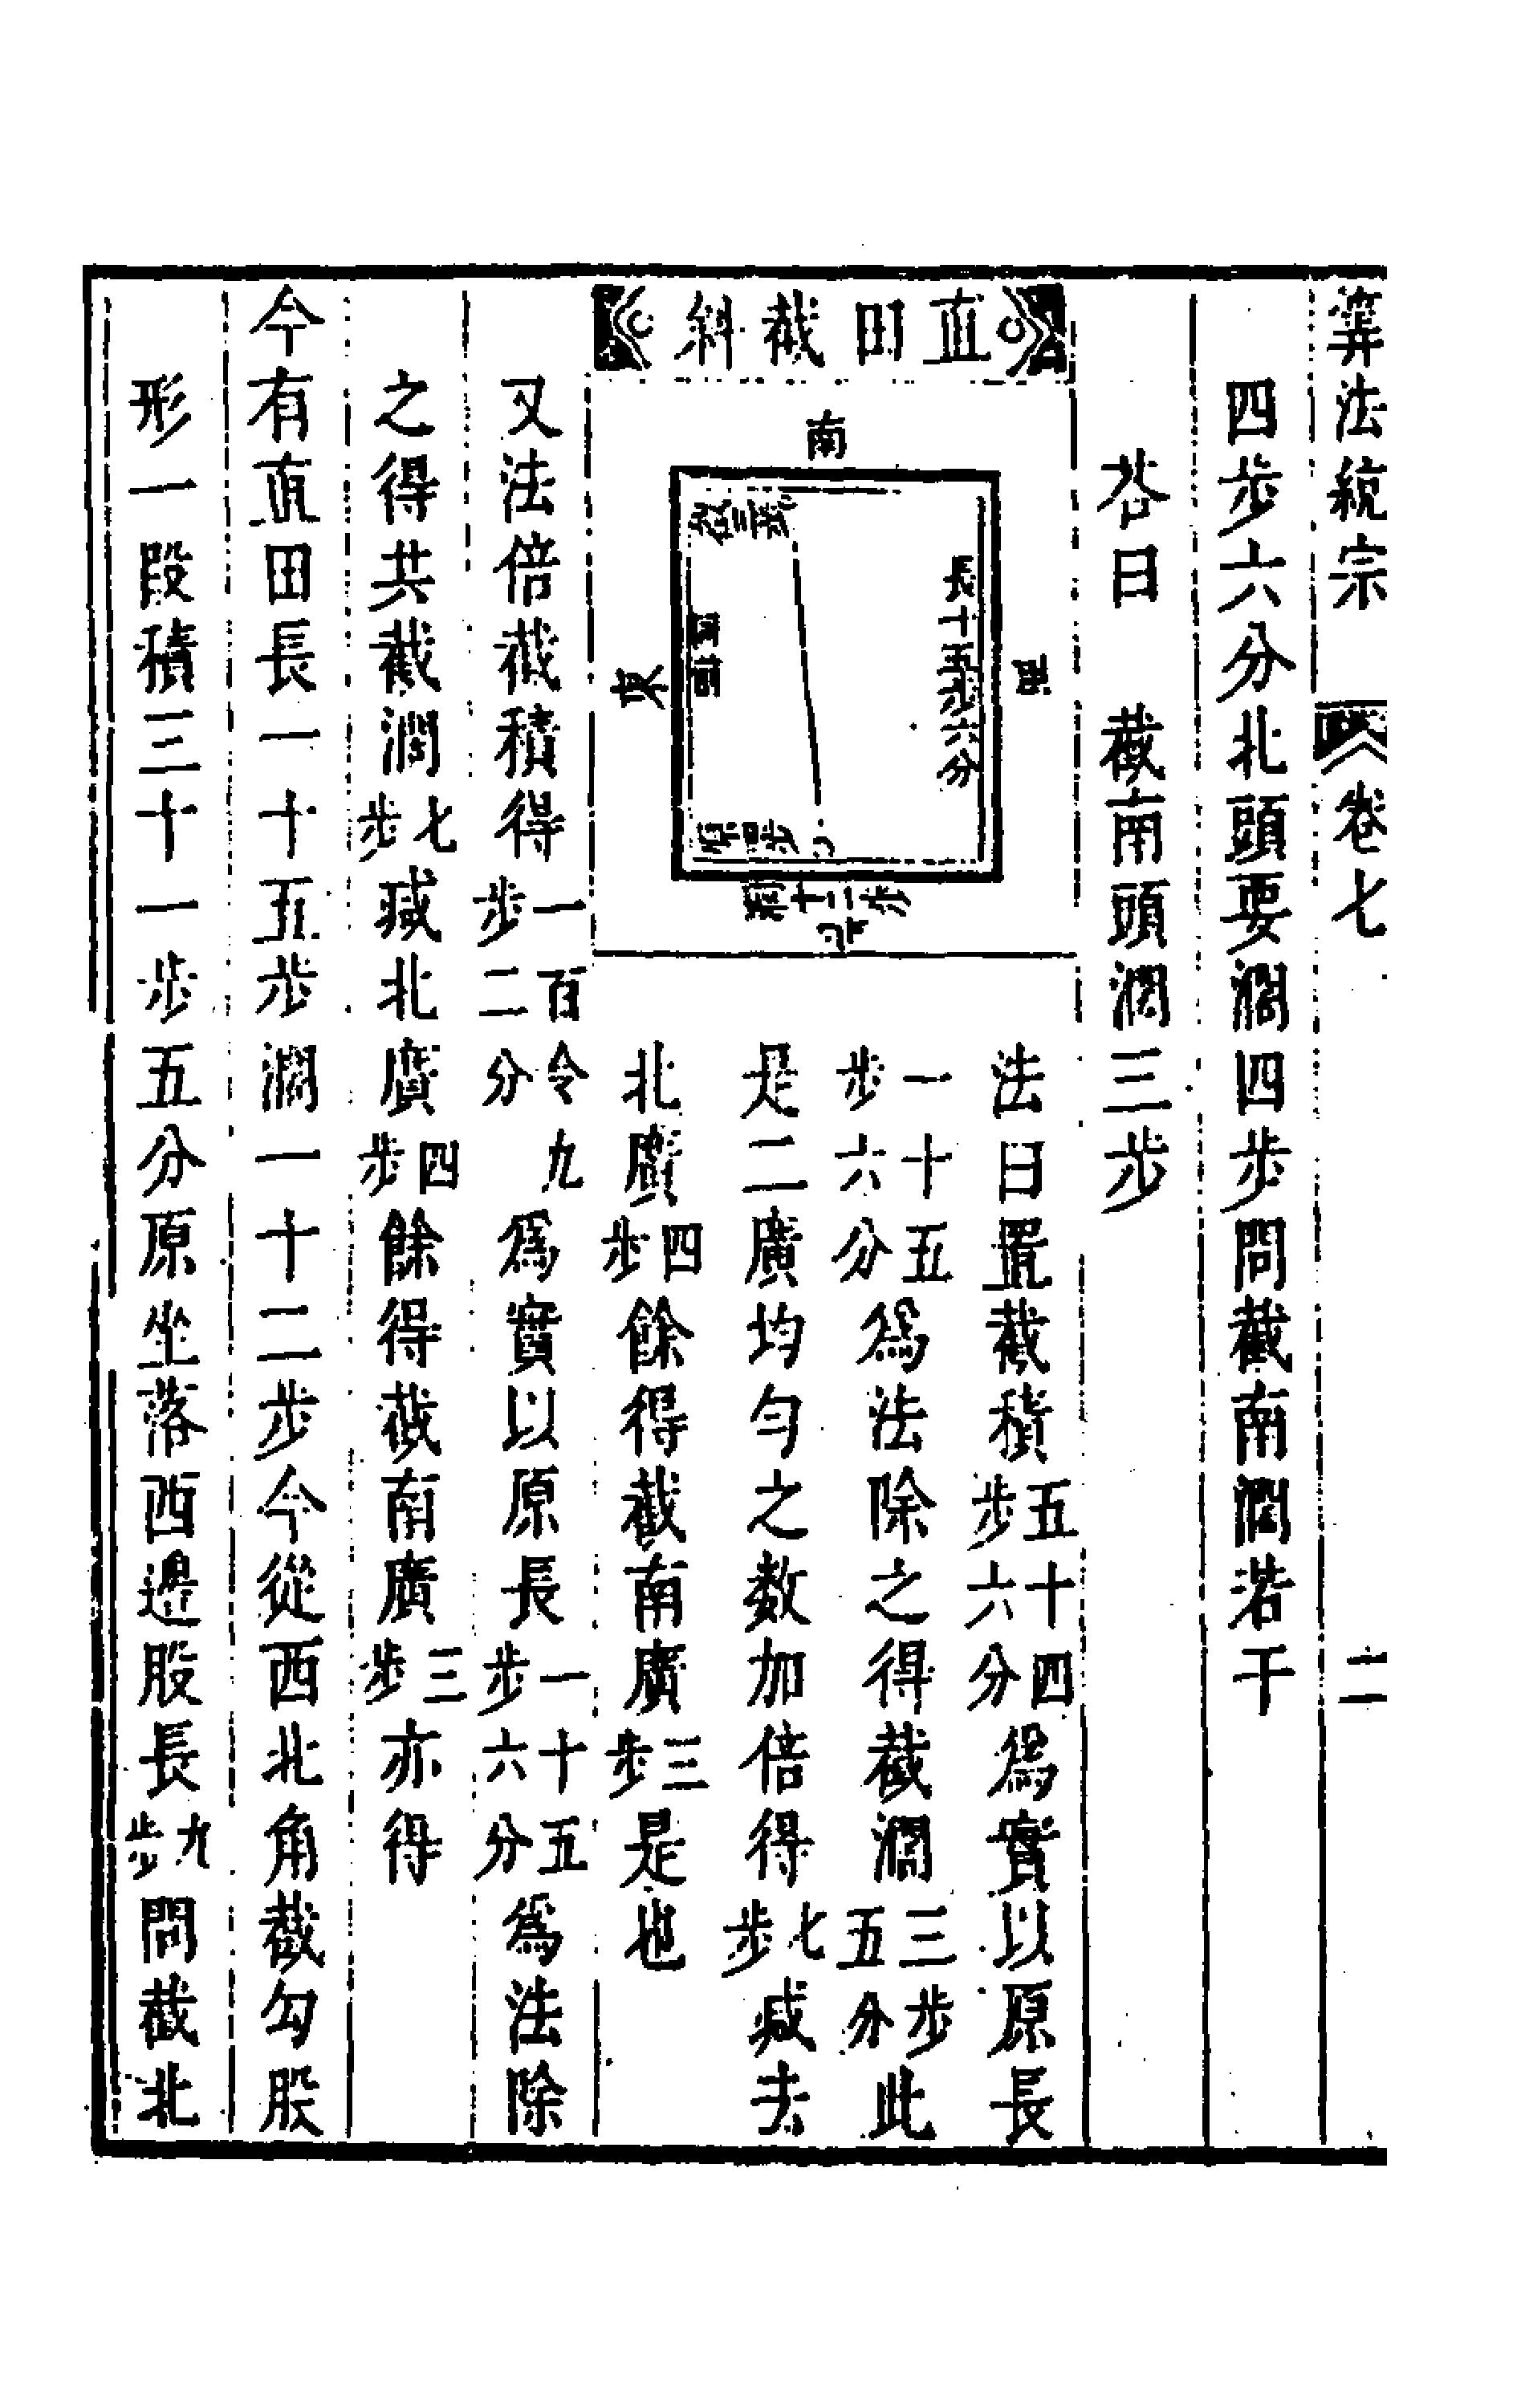 筭法統宗 卷七 二
四步六分北頭要濶四步問截南濶若干
荅曰 截南頭濶三步
直田截斜
南
西
長十五步六分
東
法曰置截積五十四步六分為實以原長
一十五步六分為法除之得截濶三步五分此
是二廣均勻之数加倍得七步减去
北廣四步餘得截南廣三步是也
又法倍截積得一百令九步二分為實以原長一十五步六分為法除
之得共截濶七步减北廣四步餘得截南廣三步亦得
今有直田長一十五步濶一十二步今從西北角截勾股
形一段積三十一步五分原坐落西邊股長九步問截北